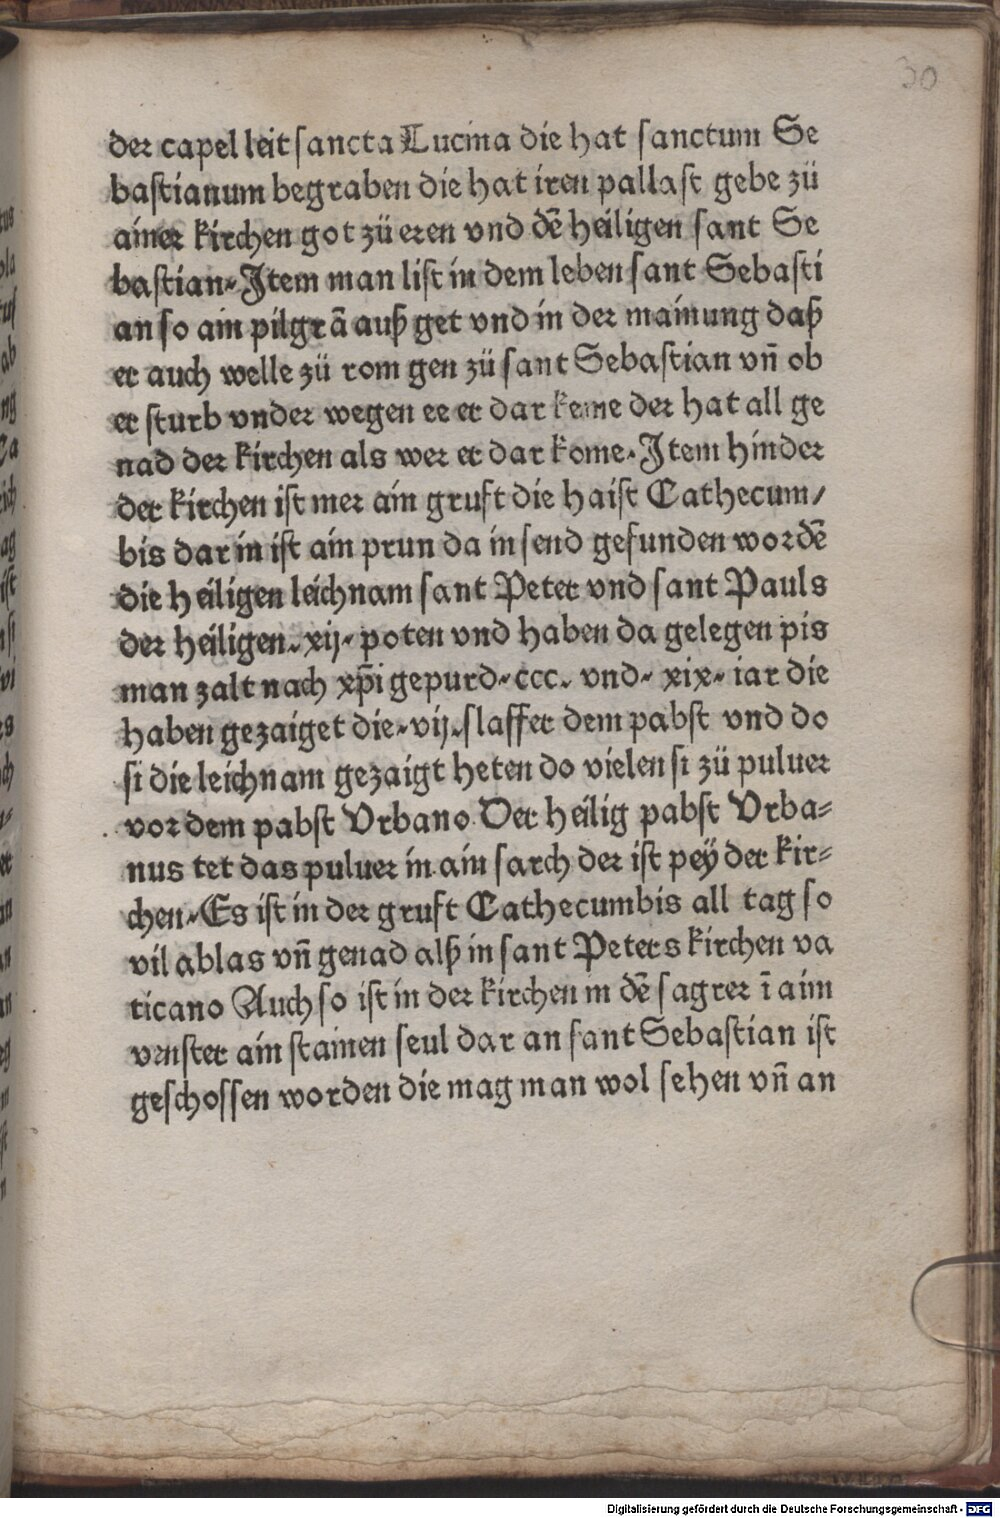 30
der capel leit sancta Lucina die hat sanctum Se
bastianum begraben die hat iren pallast gebe zü
ainer kirchen got zü eren vnd dē heiligen sant Se
bastian. Item man list in dem leben sant Sebasti
an so ain pilgrā auß get vnd in der mainung daß
er auch welle zü rom gen zü sant Sebastian vñ ob
er sturb vnder wegen ee er dar keme der hat all ge
nad der kirchen als wer er dar kome. Item hinder
der kirchen ist mer ain gruft die haist Cathecum/
bis dar in ist ain prun da in send gefunden wordē
die heiligen leichnam sant Peter vnd sant Pauls
der heiligen. xij. poten vnd haben da gelegen pis
man zalt nach xp̄i gepurd. ccc. vnd. xix. iar die
haben gezaiget die. vij. slaffer dem pabst vnd do
si die leichnam gezaigt heten do vielen si zü puluer
vor dem pabst Vrbano Der heilig pabst Vrba=
nus tet das puluer in ain sarch der ist pey der kir=
chen. Es ist in der gruft Cathecumbis all tag so
vil ablas vñ genad alß in sant Peters kirchen va
ticano Auch so ist in der kirchen in dē sagrer ī aim
venster ain stainen seul dar an sant Sebastian ist
geschossen worden die mag man wol sehen vñ an
Digitalisierung gefördert durch die Deutsche Forschungsgemeinschaft - DFG